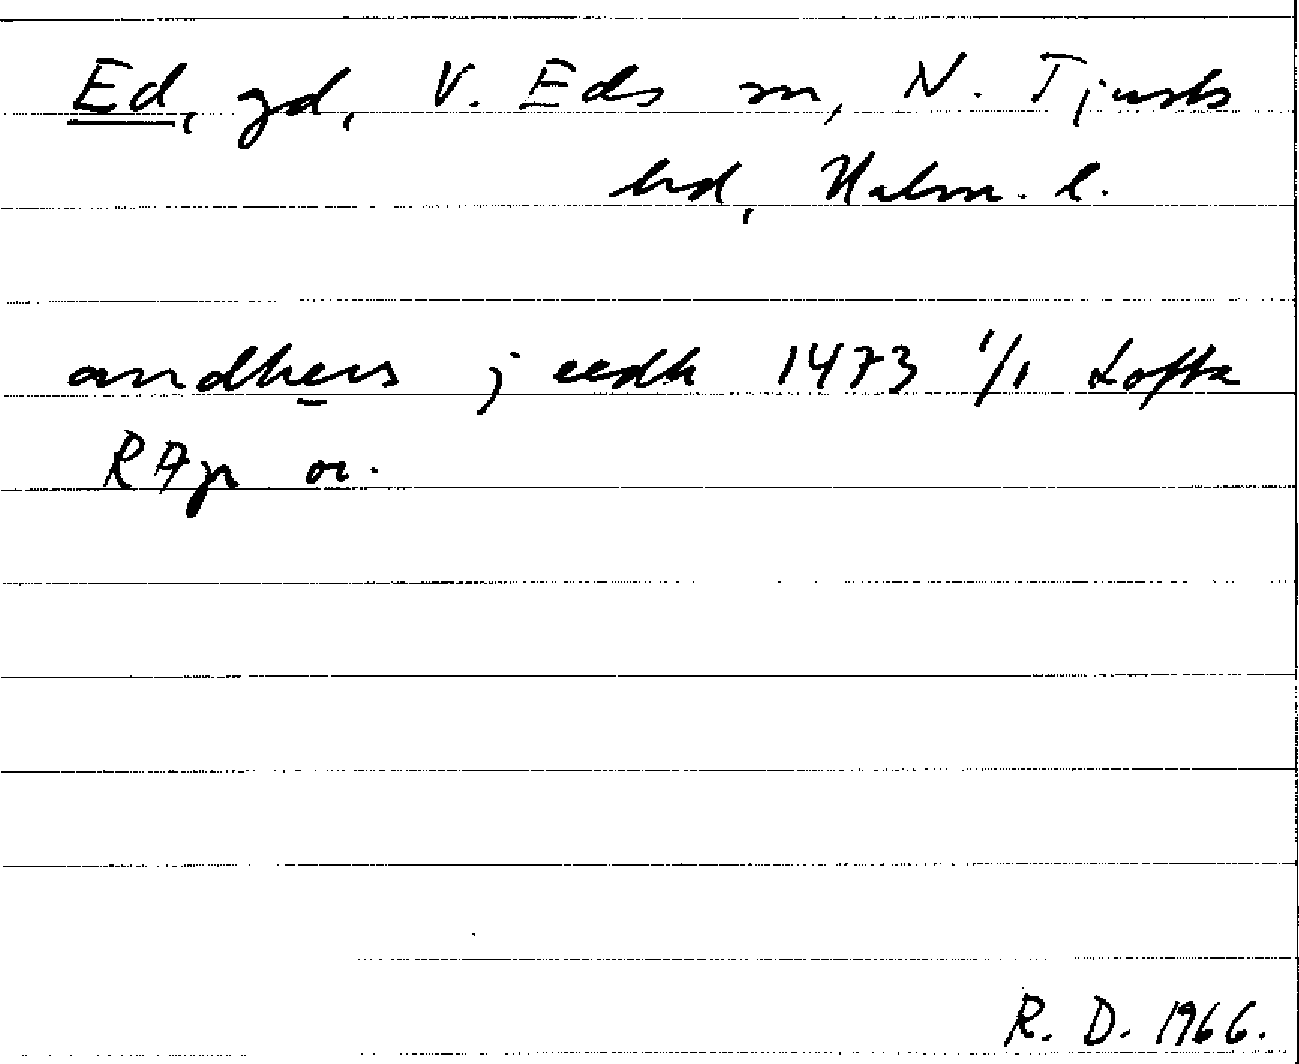 Ed, gd, V. Eds sn, N. Tjusts
hd, Kalm. l.
andhers j eedh 1473 1/1 Lofta
RAp or.
R. D. 1966.